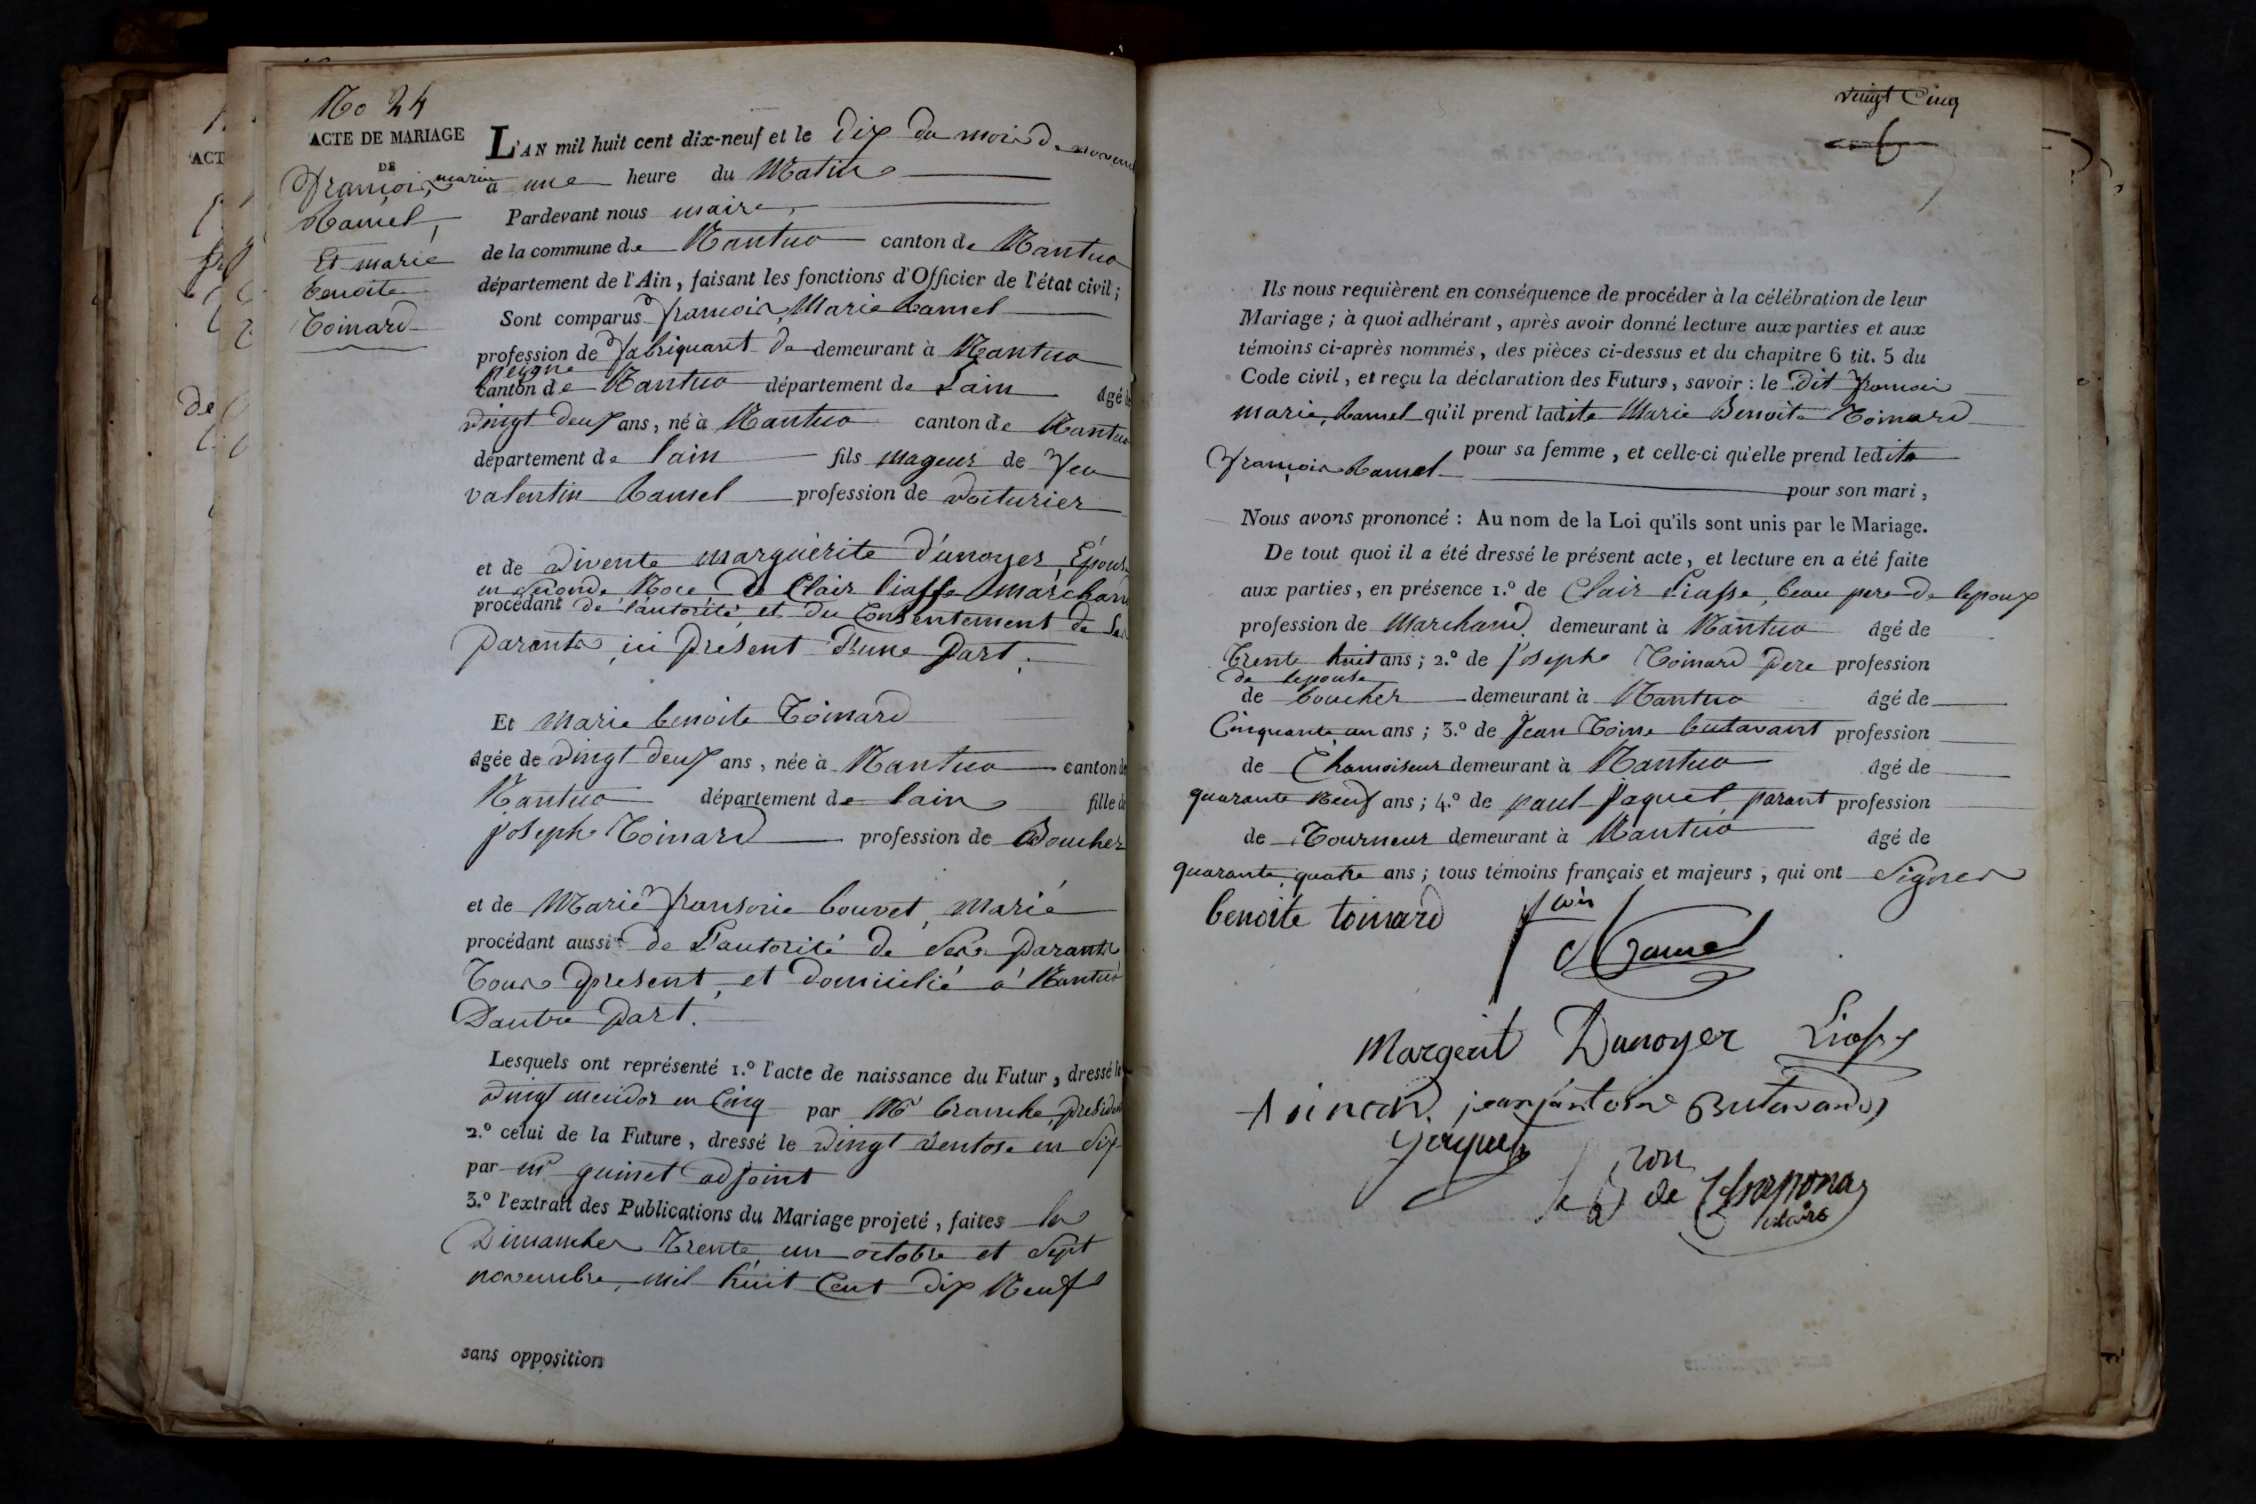 No 24
ACTE DE MARIAGE
DE
françois marie
Ramel,
Et marie
benoite
Toinard
L'AN mil huit cent dix-neuf et le dix du mois de novem
à une heure du Matin
Pardevant nous maire,
de la commune de Nantua canton de Nantua
département de l'Ain, faisant les fonctions d'Officier de l'état civil;
Sont comparus françois Marie Ramel
profession de fabriquant de demeurant à Nantua
peigne
canton de Nantua département de Lain âgé de
vingt deux ans, né à Nantua canton de Nantua
département de lain fils mageur de feu
valentin Ramel profession de voiturier
et de vivente marguerite d'unoyer, Épouse
en seconde Noce de Clair liasse marchand
procédant de l'autorité et du Consentement de Ses
parents ici present D'une part.
Et marie benoite Toinard
âgée de vingt deux ans, née à Nantua canton de
Nantua département de lain fille de
joseph Toinard profession de Boucher
et de Marie fransoise bouvet marié
procédant aussi de L'autorité de Ses parants
Tous present, et domicilié à Nantua
Dautre part.
Lesquels ont représenté 1.º l'acte de naissance du Futur, dressé le
vingt messidor en Cinq par Mr branche, president
2.º celui de la Future, dressé le vingt ventose en Six
par mr guinet adjoint
3.º l'extrait des Publications du Mariage projeté, faites les
Dimanches Trente un octobre et Sept
novembre, mil huit Cent dix Neuf
sans opposition
vingt Cinq
Ils nous requièrent en conséquence de procéder à la célébration de leur
Mariage; à quoi adhérant, après avoir donné lecture aux parties et aux
témoins ci-après nommés, des pièces ci-dessus et du chapitre 6 tit. 5 du
Code civil, et reçu la déclaration des Futurs, savoir: le dit françois
marie, Ramel qu'il prend ladite Marie Benoite Toinard
pour sa femme, et celle-ci qu'elle prend ledite
françois Ramel pour son mari,
Nous avons prononcé: Au nom de la Loi qu'ils sont unis par le Mariage.
De tout quoi il a été dressé le présent acte, et lecture en a été faite
aux parties, en présence 1.º de Clair Liasse, beau pere de lepoux
profession de Marchand demeurant à Nantua âgé de
Trente huit ans; 2.º de joseph Toinard pere profession
de lepouse
de boucher demeurant à Nantua âgé de
Cinquante un ans; 3.º de Jean Toine butavant profession
de Chamoiseur demeurant à Nantua âgé de
quarante Neuf ans; 4.º de paul jaquet parant profession
de Tourneur demeurant à Nantua âgé de
quarante quatre ans; tous témoins français et majeurs, qui ont Signer
benoite toinard
Ramel
Margerit Dunoyer Liasse
toinard. jean antoine Butavand
jaquet
le Bron de Chaponay
Maire